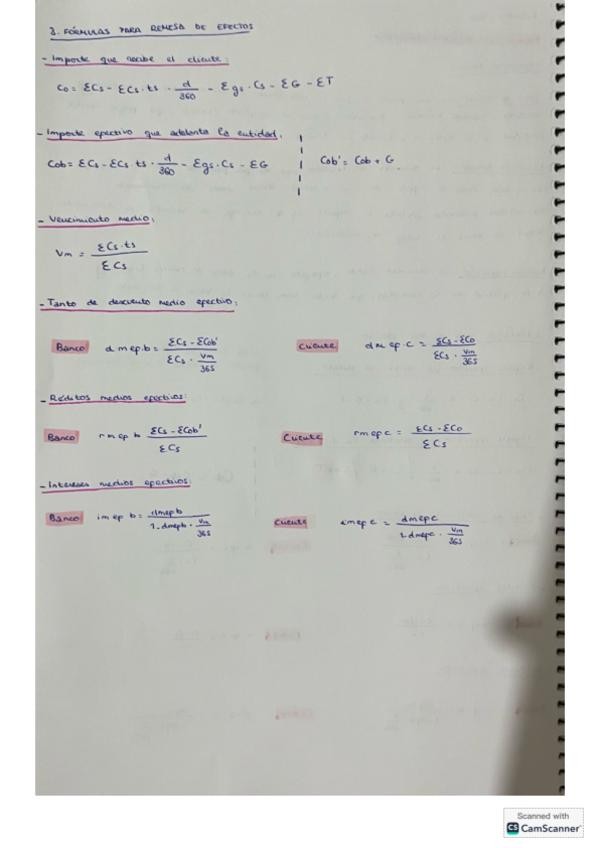 3. FÓRMULAS PARA REMESA DE EFECTOS
- Importe que recibe el cliente:
Co = ΣCs - ΣCs . ts . d/360 - Σgs . Cs - ΣG - ΣT
- Importe efectivo que adelanta la entidad:
Cob = ΣCs - ΣCs . ts . d/360 - Σgs . Cs - ΣG
Cob' = Cob + G
- Vencimiento medio:
Vm = ΣCs.ts / ΣCs
- Tanto de descuento medio efectivo:
Banco d m ep.b = ΣCs - ΣCob' / ΣCs . Vm/365
Cliente d m ep.c = ΣCs - ΣCo / ΣCs . Vm/365
- Réditos medios efectivos:
Banco r m ep b ΣCs - ΣCob' / ΣCs
Cliente r m ep c = ΣCs - ΣCo / ΣCs
- Intereses medios efectivos:
Banco i m ep b = dmepb / 1-dmepb . Vm/365
Cliente i m ep c = dmepc / 1-dmepc . Vm/365
Scanned with
CS CamScanner